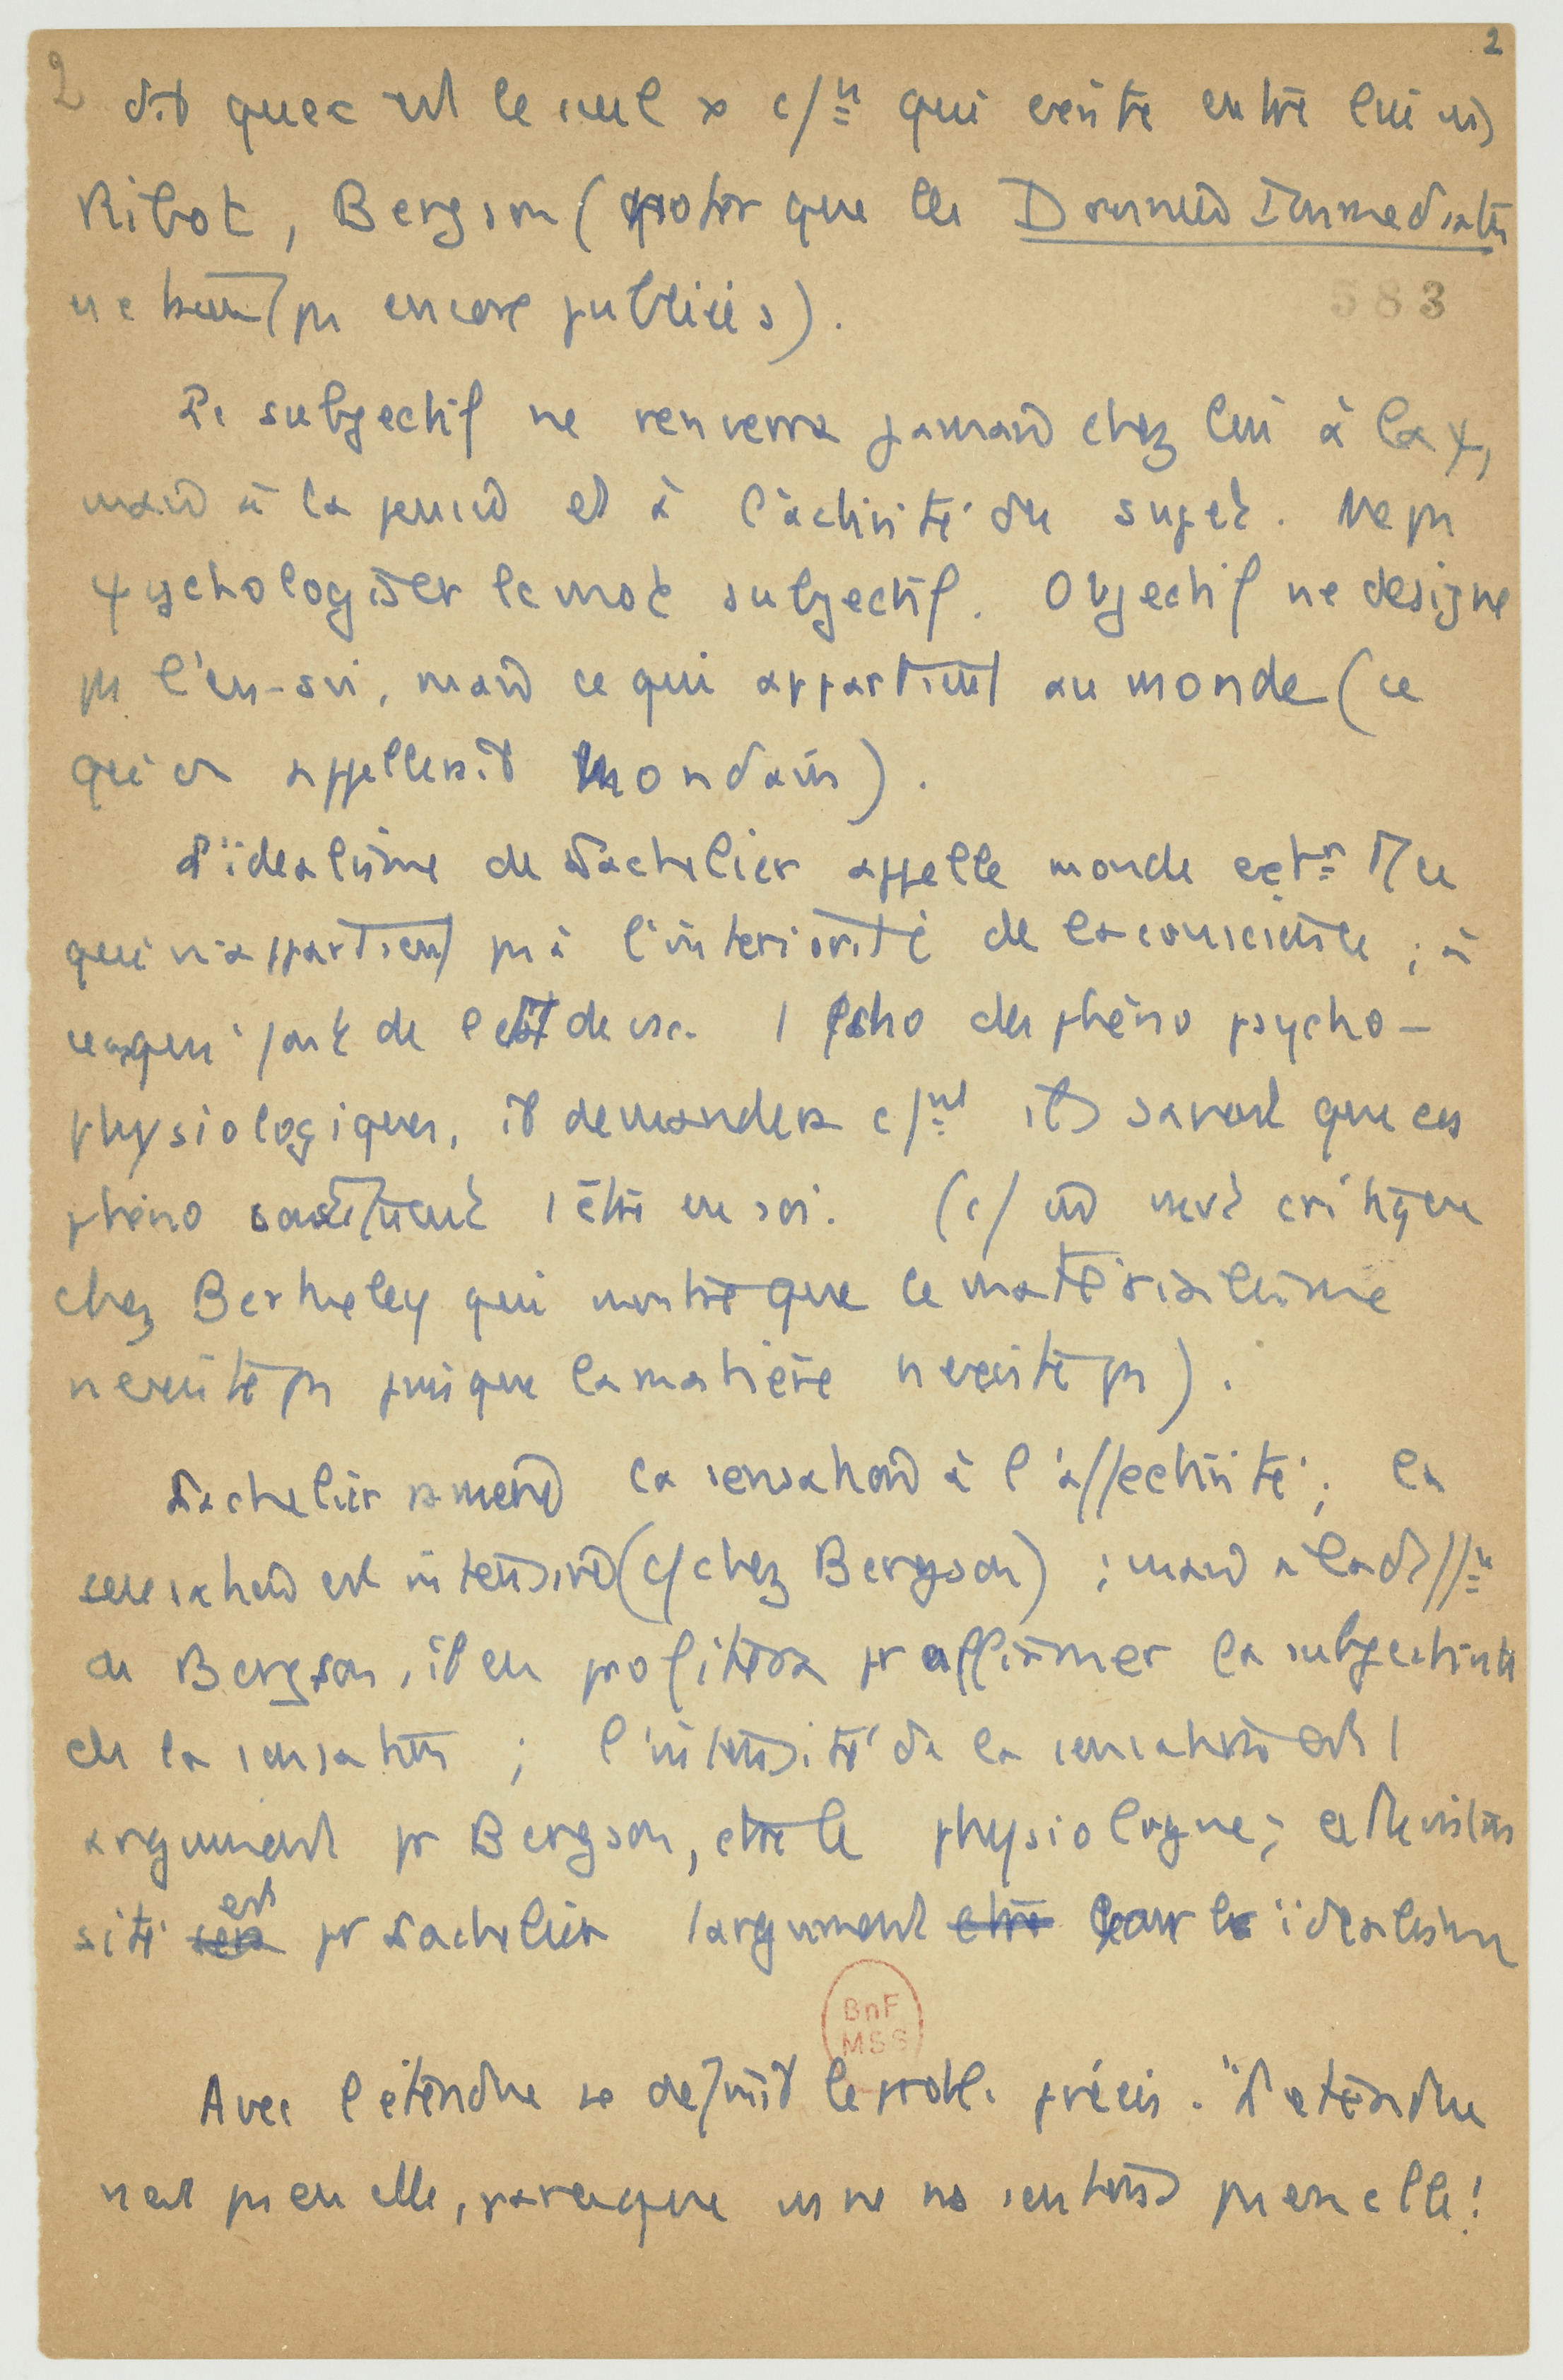 2
2
dit que c est le seul x c/n qui existe entre lui et
Ribot, Bergson (noter que les Données Immédiates
ne sont ps encore publiées).
583
Le subjectif ne renverra jamais chez lui à la ψ,
mais à la pensée et à l'activité du sujet. Ne ps
ψychologiser le mot subjectif. Objectif ne designe
ps l'en-soi, mais ce qui appartient au monde (ce
qu'on appellerait Mondain).
L'idealisme de Lachelier appelle monde extr ce
qui n'appartient ps à l'intériorité de la conscience ; à
ceux qui font de l'
des phéno psycho-
physiologiques, il demandera c/nt ils savent que ces
phéno constituent l être en soi. (c/ une critique
chez Berkeley qui montre que le matérialisme
n existe ps puisque la matière n existe ps).
Lachelier ramène la sensation à l'affectivité ; la
sensation est intensive (c/ chez Bergson) ; mais a la diff/n
de Bergson, il en profitera pr affirmer la subjectivité
de la sensation ; l'intensité de la sensation est 1
argument pr Bergson, ctre le physiologue ; cette inten
sité sera est pr Lachelier 1 argument ctre pour l' idealisme
BnF
MSS
Avec l étendue se definit le probl. précis. "L etendue
n est ps en elle, parceque ns ne ns sentons ps en elle!